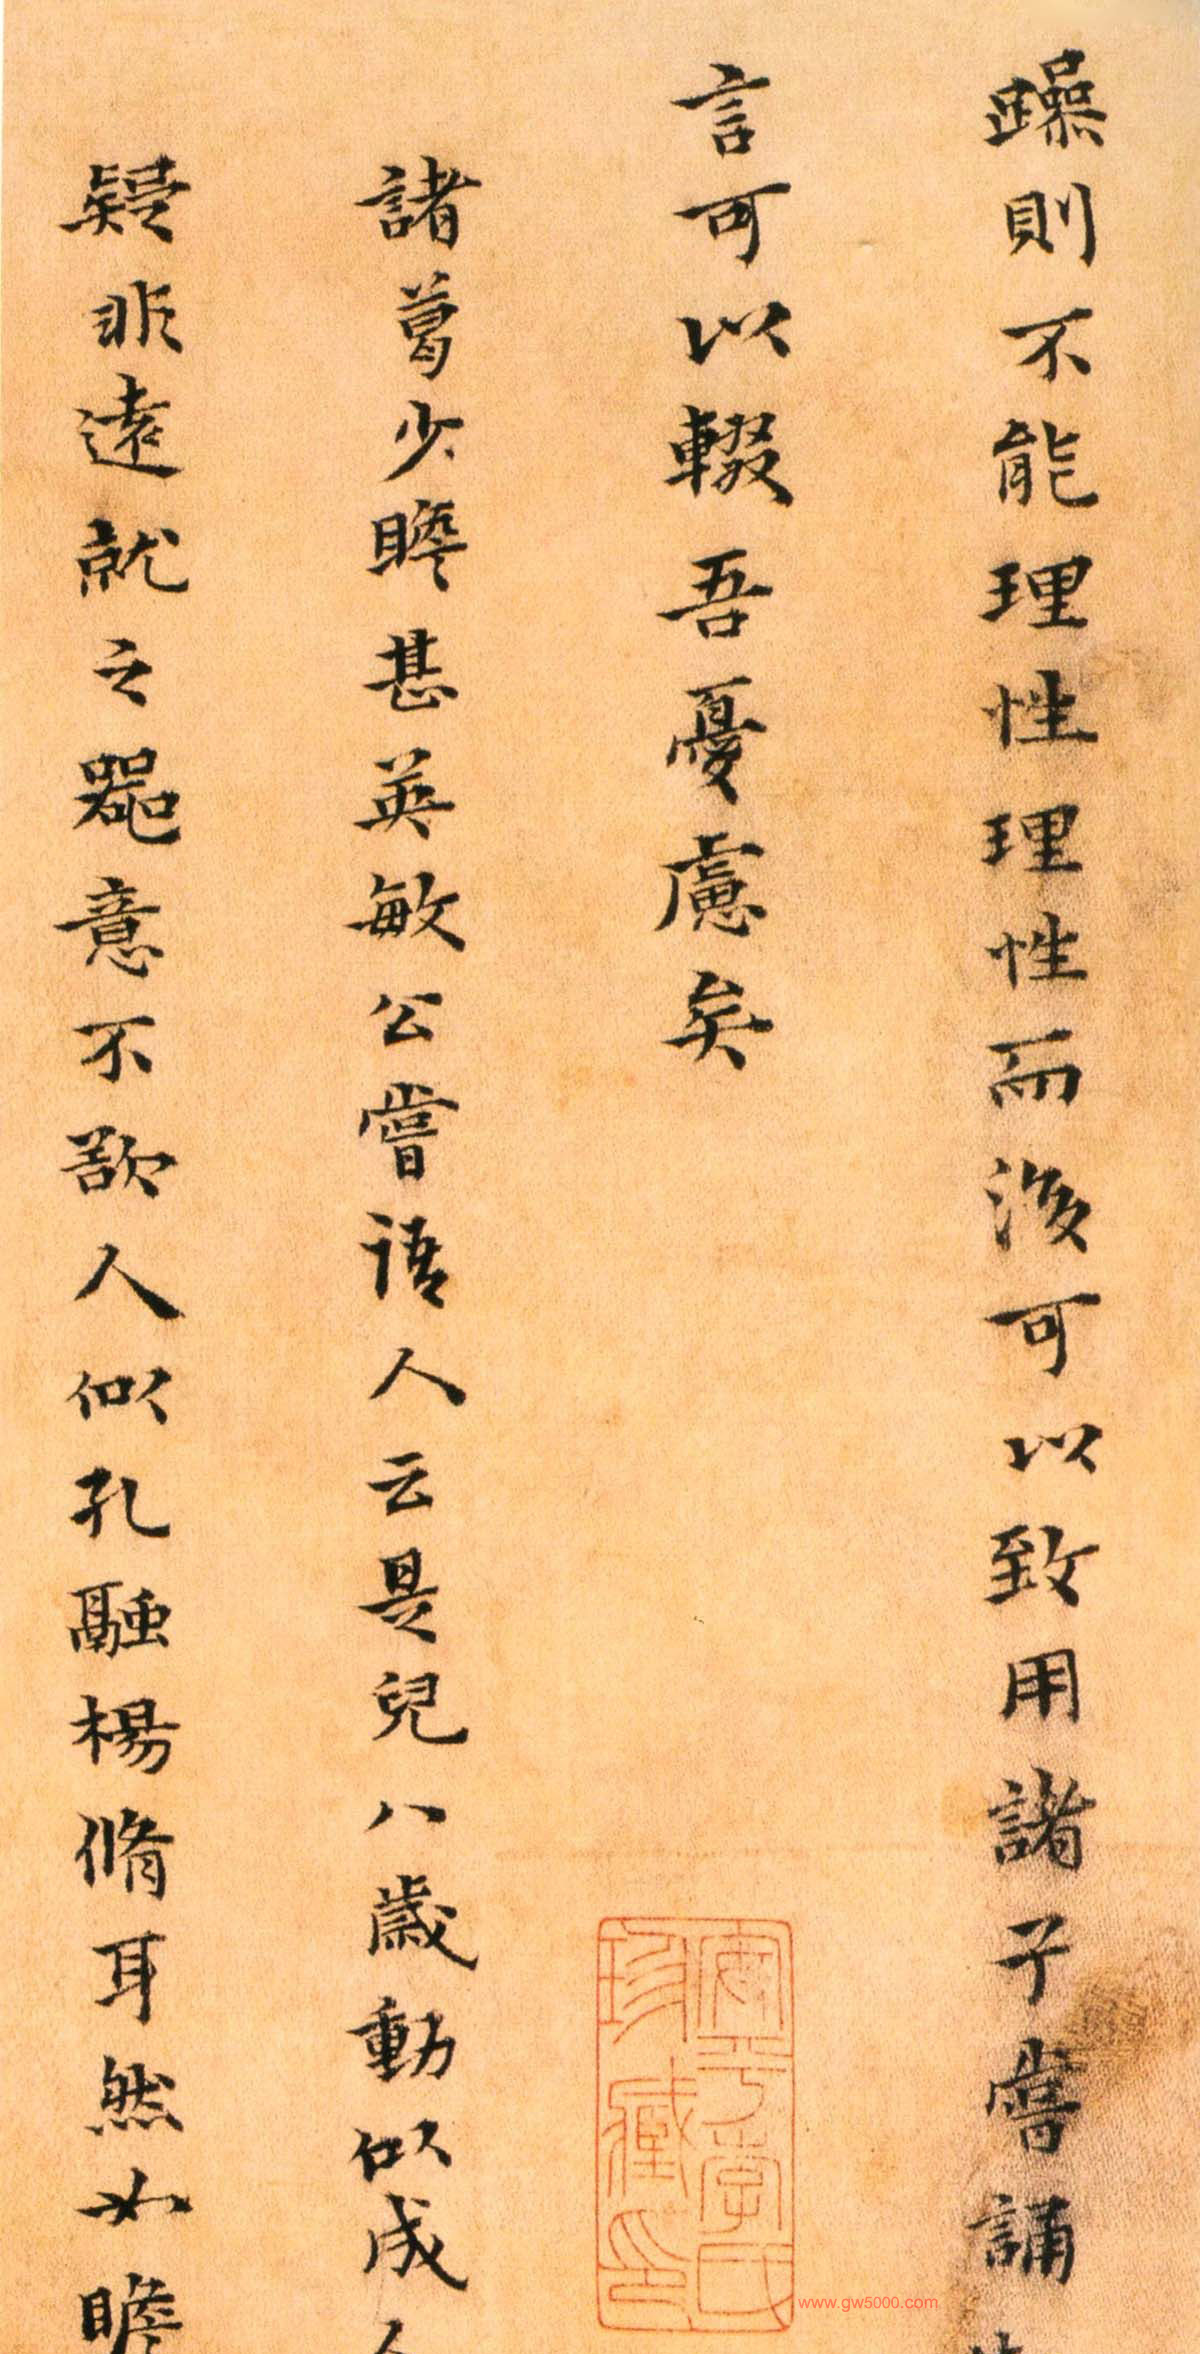 躁則不能理性理性而後可以致用諸子嘗誦
言可以輟吾憂慮矣
諸葛少瞻甚英敏公嘗語人云是兒八歲動似成人
疑非遠就之器意不欲人似孔融楊脩耳然如瞻
珍藏印
www.gw5000.com